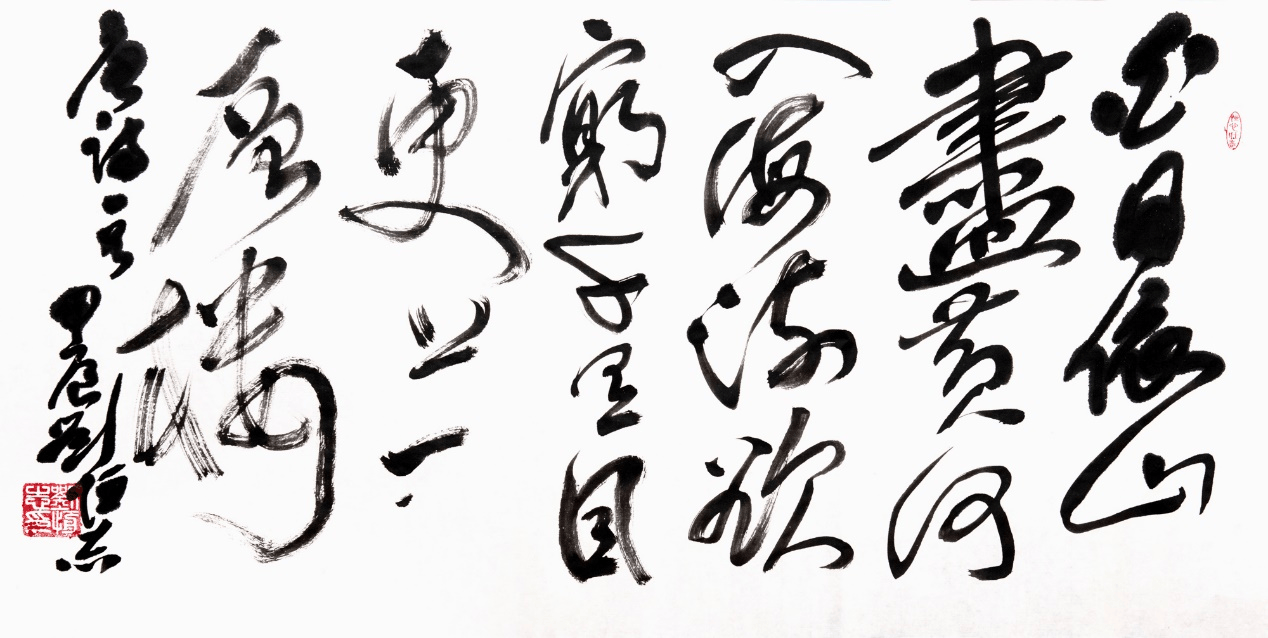 白日依山
盡黃河
入海流欲
窮千里目
更上一
層樓
唐詩一首
甲辰劉